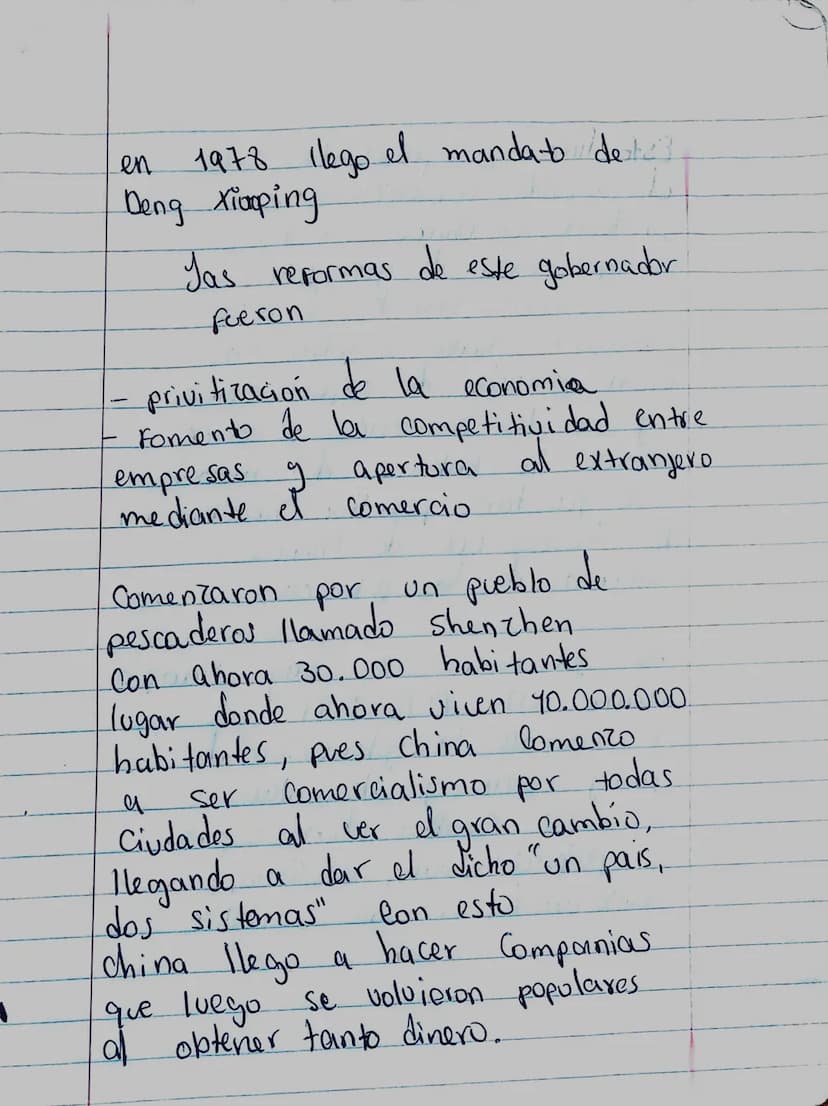 en 1978 llego el mandato de
Deng xiaoping
las reformas de este gobernador
fueron
- privitización de la economia
- Fomento de la competitividad entre
empresas y apertura al extranjero
mediante el comercio
Comenzaron por un pueblo de
pescaderos llamado shenzhen
Con ahora 30.000 habitantes
lugar donde ahora viven 10.000.000
habitantes, pues china Comenzo
a ser Comercialismo por todas
Ciudades al ver el gran cambio,
llegando a dar el dicho "un pais,
dos sistemas" Con esto
china llego a hacer Compannias
que luego se volvieron populares
al obtener tanto dinero.